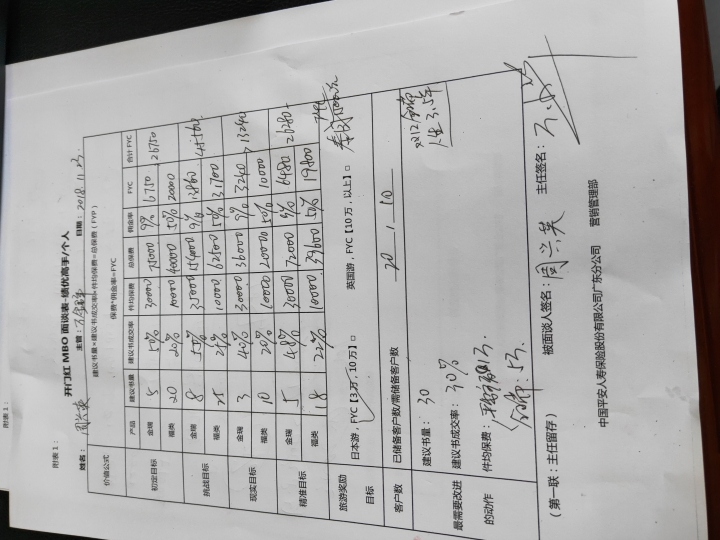 附表1：
附表1：
开门红 MBO 面谈表-绩优高手/个人
姓名： 周兴英 主管： 日期： 2018.11.23.
价值公式 建议书量*建议书成交率*件均保费=总保费（FYP）
保费*佣金率=FYC
产品 建议书量 建议书成交率 件均保费 总保费 佣金率 FYC 合计 FYC
初定目标 金瑞 5 50% 30000 75000 9% 6750 26750
福类 20 20% 10000 40000 50% 20000
挑战目标 金瑞 8 35000 9%
福类 25 25% 10000 62500 50%
现实目标 金瑞 3 40% 30000 36000 9% 3240 13240
福类 10 20% 10000 20000 50% 10000
精准目标 金瑞 5 48% 30000 72000 9% 6480 26280
福类 18 22% 10000 39600 50% 19800
旅游奖励目标 日本游，FYC【3万，10万】□ 英国游，FYC【10万，以上】□
客户数 已储备客户数/需储备客户数 20 / 50
最需要改进的动作 建议书量： 30
建议书成交率： 30%
件均保费：
（第一联：主任留存） 被面谈人签名： 周兴英 主任签名：
中国平安人寿保险股份有限公司广东分公司 营销管理部